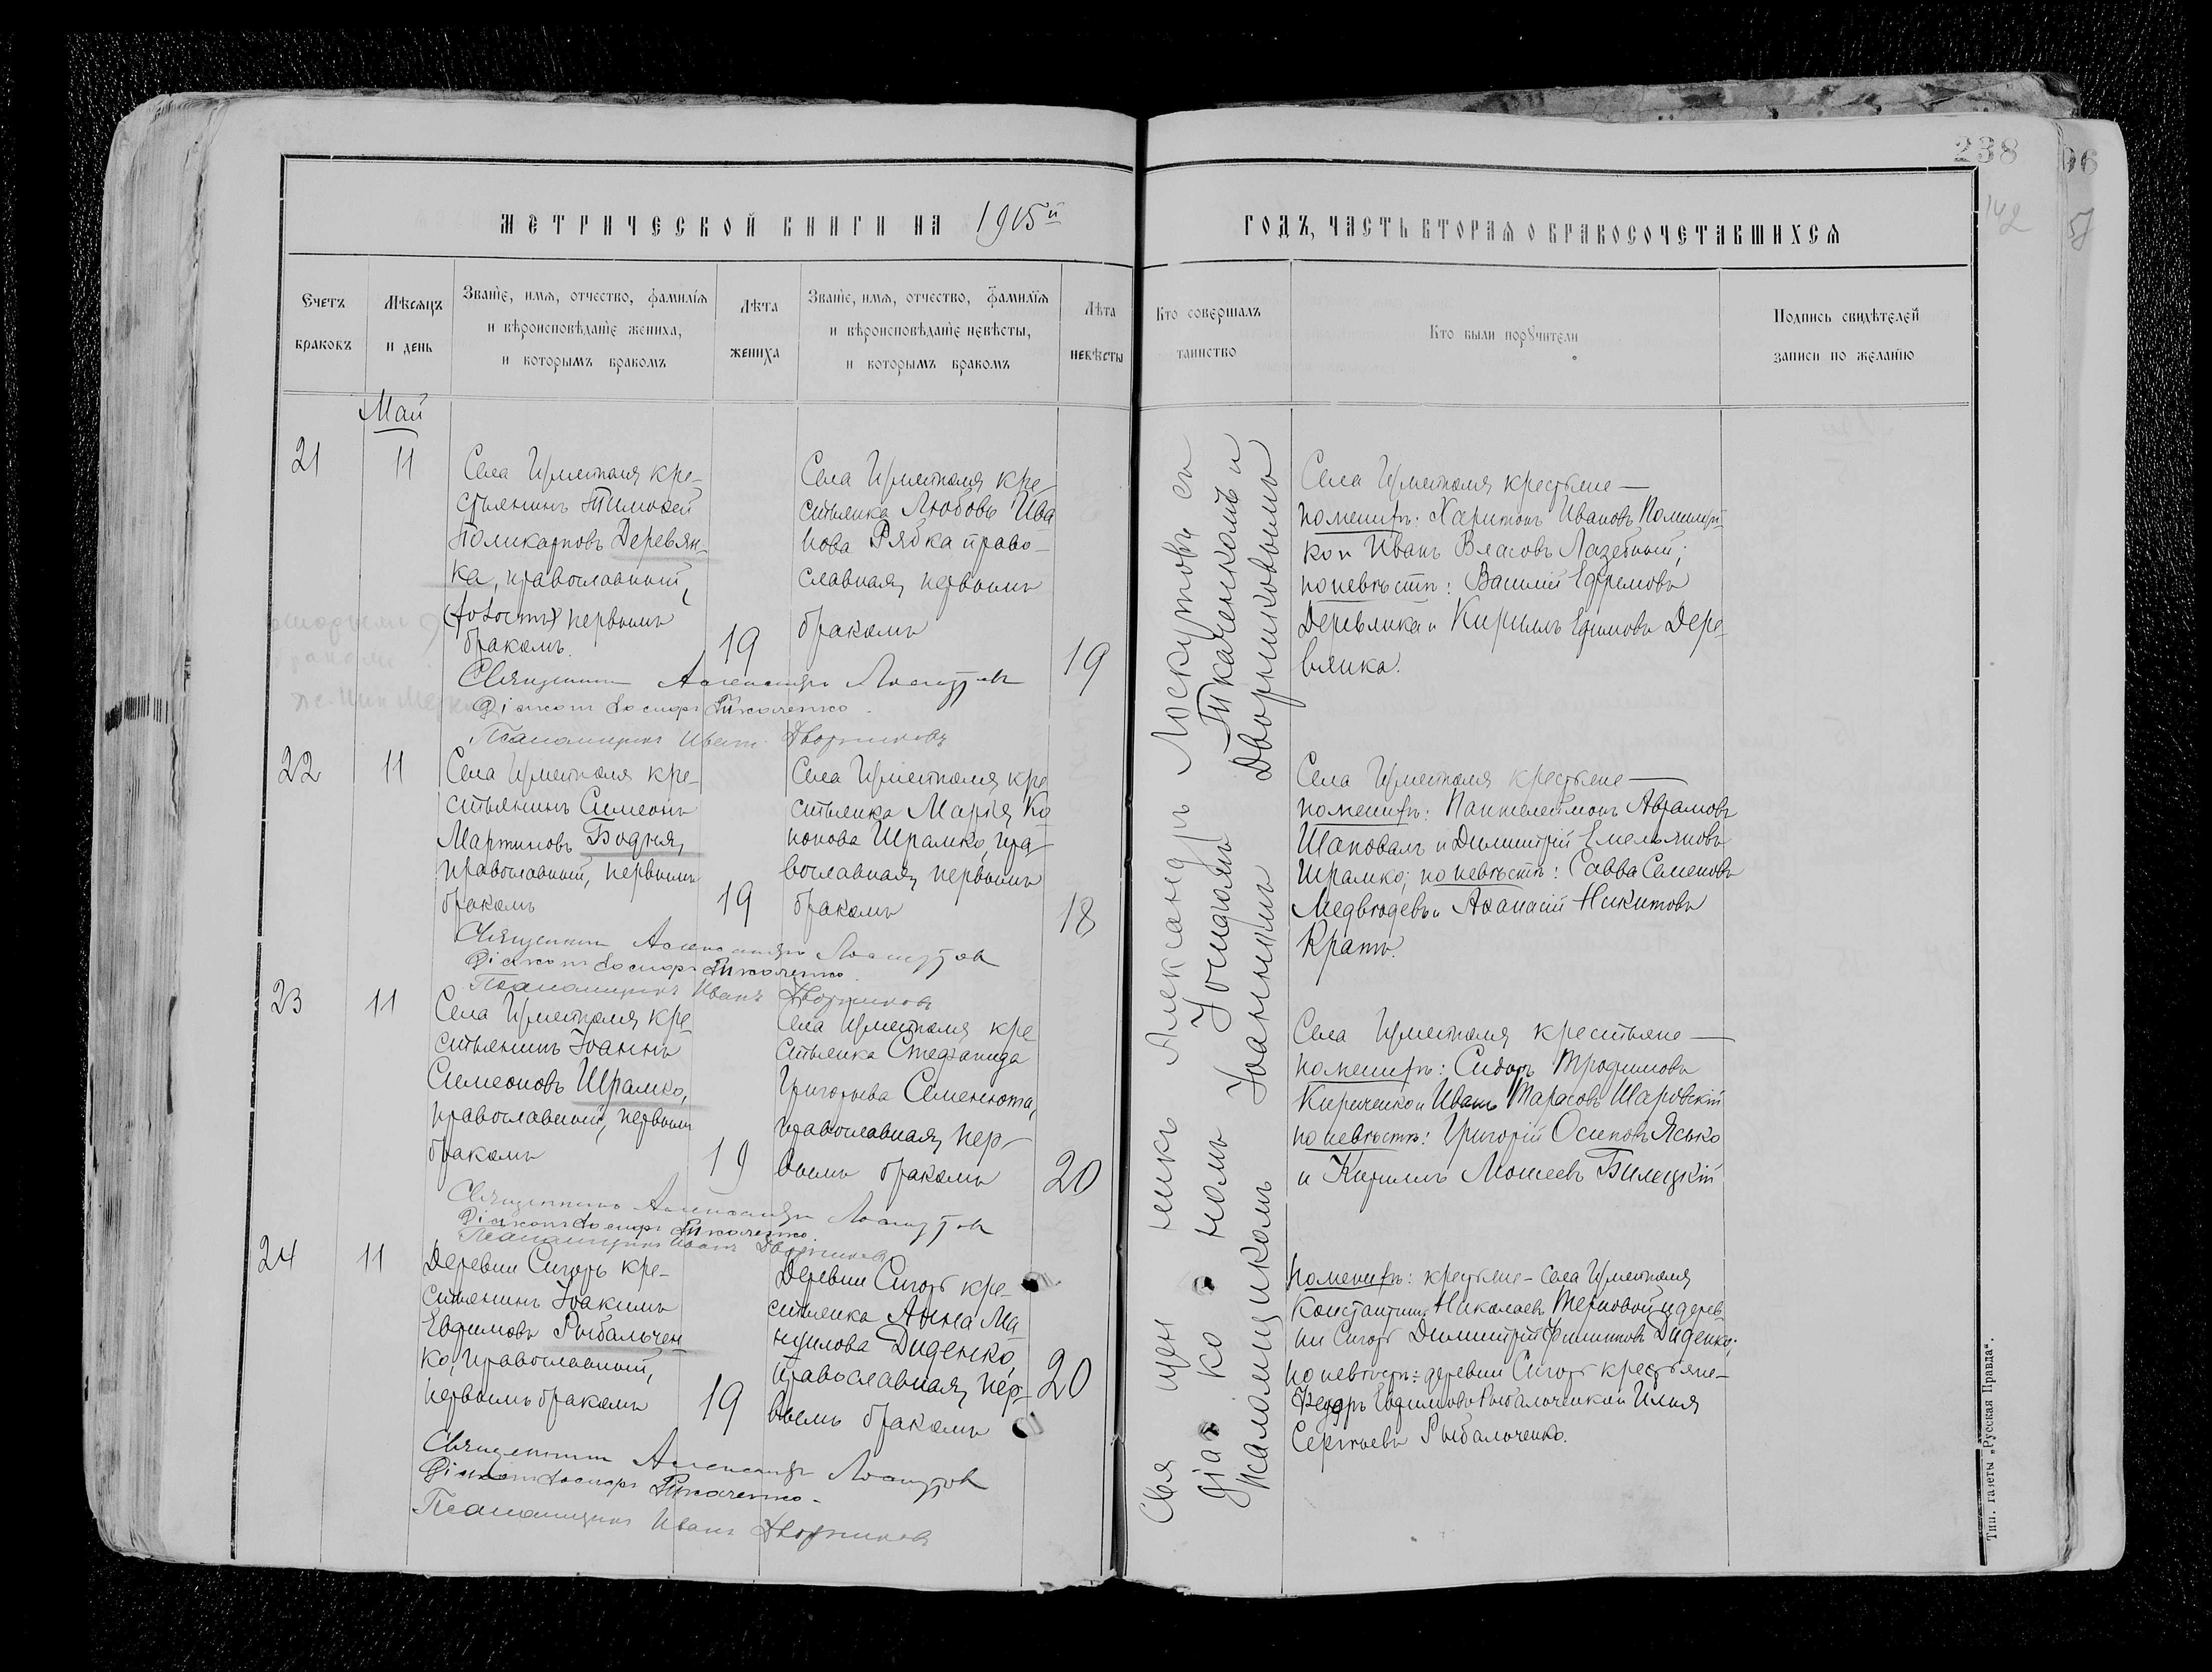 238
142
МЕТРИЧЕСКОЙ КНИГИ НА 1915й
ГОДЪ, ЧАСТЬ ВТОРАЯ О БРАКОСОЧЕТАВШИХСЯ
Счетъ
браковъ
Мѣсяцъ
и день
Званіе, имя, отчество, фамилія
и вѣроисповѣданіе жениха,
и которымъ бракомъ
Лѣта
жениха
Званіе, имя, отчество, фамилія
и вѣроисповѣданіе невѣсты,
и которымъ бракомъ
Лѣта
невѣсты
Кто совершалъ
таинство
Кто были поручители
Подпись свидѣтелей
записи по желанію
Май
21
11
Села кре-
стьянинъ Тимоѳей
Поликарповъ Деревян-
ка, православный,
первымъ
бракомъ.
19
Села кре-
стьянка Любовь Ива
нова Рябка право-
славная, первымъ
бракомъ
19
Села крестьяне —
по женихѣ: Харитонъ Ивановъ
и Иванъ Власовъ Лазебный;
по невѣстѣ: Василій Ефремовъ
Деревянка и Кириллъ Ефимовъ Дере-
вянка.
Священникъ Александръ Лоскутовъ
Діаконъ Ткаченко.
Псаломщикъ Иванъ Дворниковъ
22
11
Села кре-
стьянинъ Симеонъ
Мартиновъ Бодня,
православный, первымъ
бракомъ
19
Села кре
стьянка Марія Ко
нонова Шрамко, пра-
вославная, первымъ
бракомъ
18
Села крестьяне —
по женихѣ: Пантелеймонъ Абрамовъ
Шаповалъ и Димитрій Емельяновъ
Шрамко; по невѣстѣ: Савва Семеновъ
Медвѣдевъ и Аѳанасій Никитовъ
Кратъ.
Священникъ Александръ Лоскутовъ
Діаконъ Ткаченко.
Псаломщикъ Иванъ Дворниковъ
23
11
Села кре-
стьянинъ Іоаннъ
Симеоновъ Шрамко,
православный, первымъ
бракомъ
19
Села кре
стьянка Стефанида
Григорьева Семенюта,
православная, пер-
вымъ бракомъ
20
Села крестьяне —
по женихѣ: Сидоръ Трофимовъ
Кириченко и Иванъ Тарасовъ Шаровскій
по невѣстѣ: Григорій Осиповъ Ясько
и Кириллъ Моисеевъ Билецкій
Священникъ Александръ Лоскутовъ
Діаконъ Ткаченко.
Псаломщикъ Иванъ Дворниковъ
24
11
Деревни кре-
стьянинъ Іоакимъ
Евфимовъ Рыбальчен
ко, православный,
первымъ бракомъ
19
Деревни кре-
стьянка Анна Ма-
нуилова Диденко,
православная, пер-
вымъ бракомъ
20
по женихѣ: крестьяне — села
Константинъ Николаевъ Терновой и дерев-
ни Димитрій Филипповъ Диденко;
по невѣстѣ: деревни крестьяне —
Ѳедоръ Евфимовъ Рыбальченко и Илья
Сергѣевъ Рыбальченко.
Священникъ Александръ Лоскутовъ
Діаконъ Ткаченко.
Псаломщикъ Иванъ Дворниковъ
Священникъ Александръ Лоскутовъ съ
діакономъ Ткаченкомъ и
псаломщикомъ Іоанномъ Дворниковымъ
Тип. газеты „Русская Правда“.